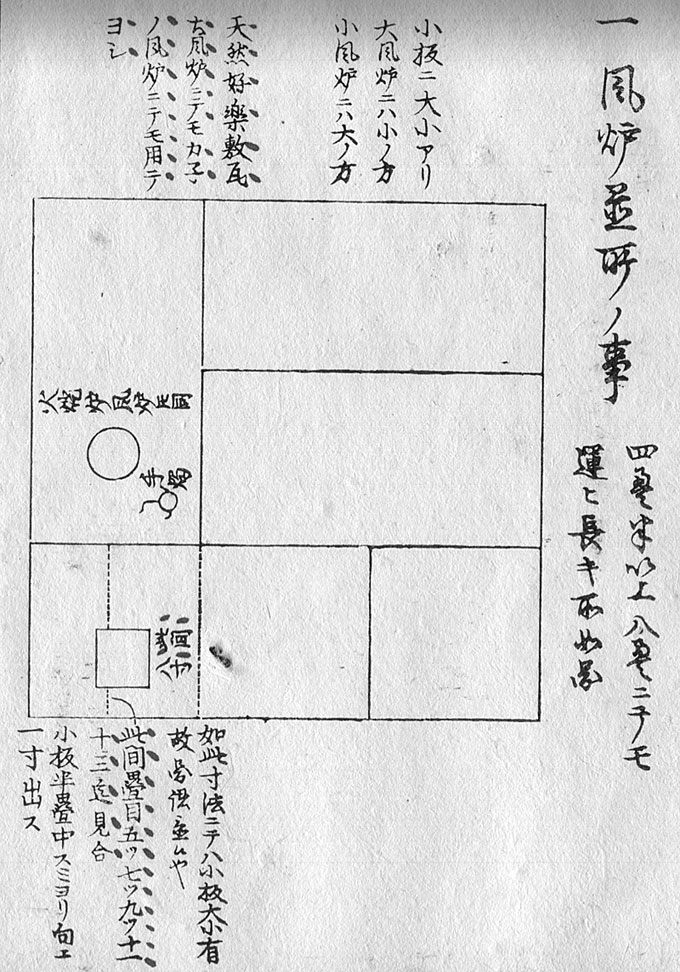 一 風炉並所ノ事
四畳半以上八畳ニテモ
運ヒ長キ不如図
小板ニ大小アリ
大風炉ニハ小ノ方
小風炉ニハ大ノ方
天然好楽敷瓦
古風炉ニテモカ子
ノ風炉ニテモ用テ
ヨシ
如此寸法ニテハ小板大小有
此間畳目五ツ七ツ九ツ十一
十三迄見合
小板半畳中スミヨリ向エ
一寸出ス